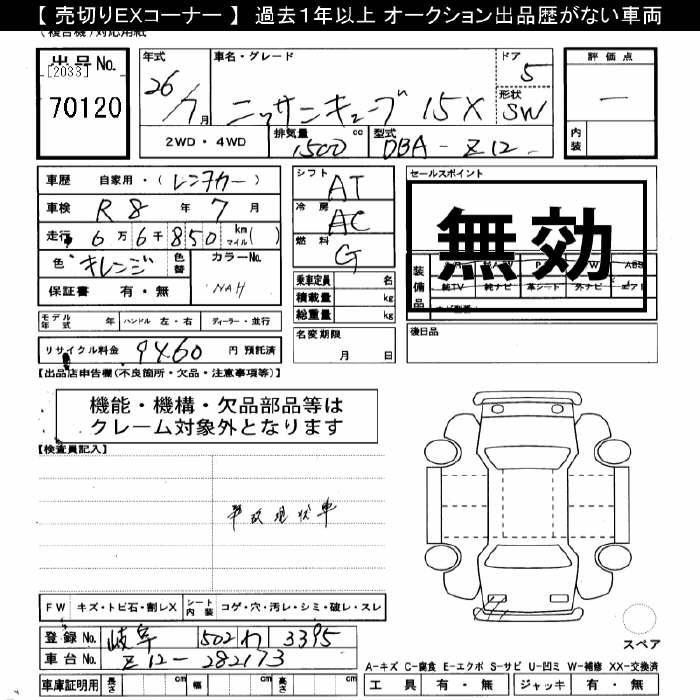 【 売切りEXコーナー 】 過去１年以上 オークション出品歴がない車両
(複合機)対応用紙
出品 No.
[2033]
70120
年式
26/7月
車名・グレード
ニッサンキューブ 15X
ドア
5
形状
SW
評価点
一
内装
2WD・4WD
排気量
1500 cc
型式
DBA - Z12
車歴 自家用・( レンタカー )
車検 R 8 年 7 月
走行 6 万 6 千 850 km マイル ( )
色 オレンジ
色替
カラーNo.
NAH
保証書 有・無
シフト
AT
冷房
AC
燃料
G
セールスポイント
無効
装備品
純TV
純ナビ
革シート
外ナビ
エアB
乗車定員 名
積載量 kg
総重量 kg
モデル年式 年
ハンドル 左・右
ディーラー・並行
名変期限
月 日
後日品
リサイクル料金 9460 円 預託済
【出品店申告欄(不良箇所・欠品・注意事項等)】
機能・機構・欠品部品等は
クレーム対象外となります
【検査員記入】
事故現状車
FW キズ・トビ石・割レX
シート内装 コゲ・穴・汚レ・シミ・破レ・スレ
登録 No. 岐阜 502 わ 3395
車台 No. Z12-282173
車庫証明用 長さ cm 幅 cm 高さ cm
スペア
A-キズ C-腐食 E-エクボ S-サビ U-凹ミ W-補修 XX-交換済
工具 有・無 ジャッキ 有・無